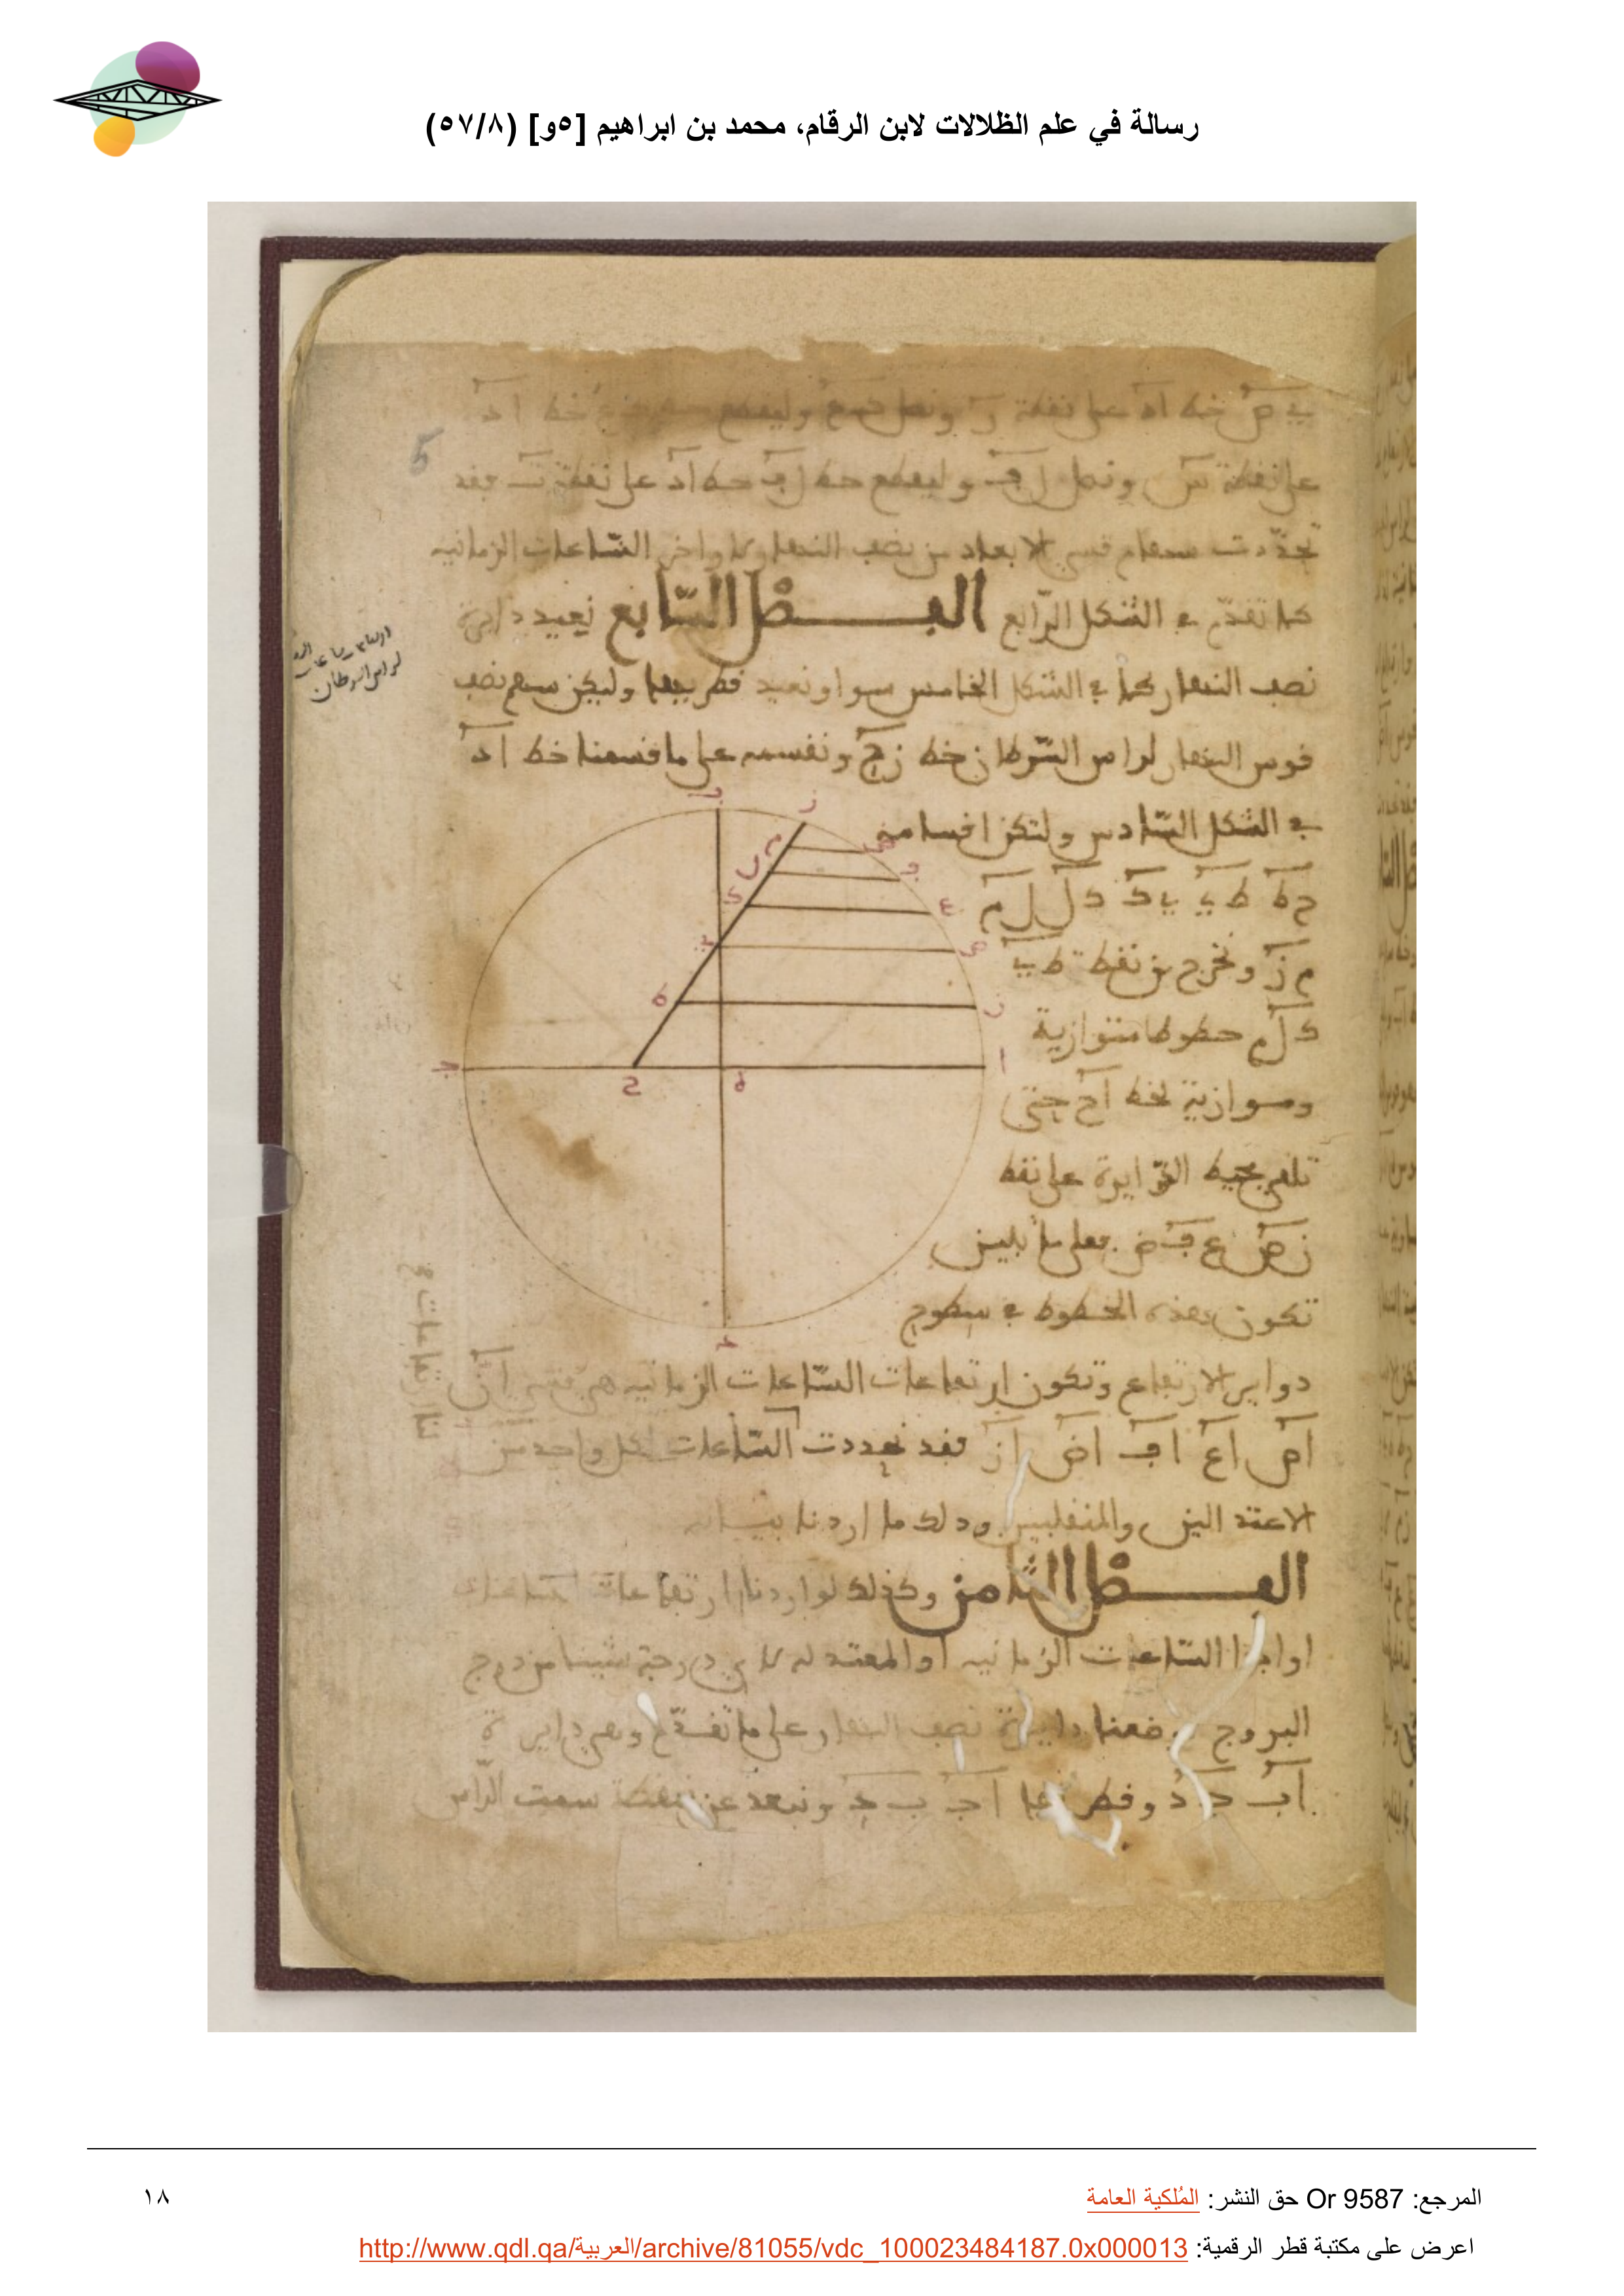 رسالة في علم الظلالات لابن الرقام، محمد بن ابراهيم [٥و] (٥٧/٨)
خط اد على نقطة ونصل وليقطع خط اد
5
على نقطة ونصل ل ف وليقطع خط ل ف خط اد على نقطة ت فقد
تحددت سهام قسي الابعاد من نصف النهار لاواخر الساعات الزمانيه
كما تقدم في الشكل الرابع الفصل السابع نعيد دايرة
نصف النهار كما في الشكل الخامس سوا ونعيد قطريها وليكن سهم نصف
قوس النهار لراس السرطان خط زح ونقسمه على ما قسمنا خط اد
لراس السرطان
في الشكل السادس ولتكن اقسامه
ح ط ط ي ي ك ك ل ل م
م ز ونخرج من نقطة ط ي
ك ل م خطوطا متوازية
وموازية لخط اج حتى
تلقى محيط الدايرة على نقط
ن ص ع ف ض فعلى ما بليس
تكون هذه الخطوط في سطوح
دواير الارتفاع وتكون ارتفاعات الساعات الزمانيه هي قسي ان
اص اع اف اض از فقد تحددت الساعات لكل واحد من
الاعتدالين والمنقلبين وذلك ما اردنا بيانه
الفصل الثامن وكذلك لو اردنا ارتفاعات
اواخر الساعات الزمانيه او المعتدله لاي درجة شينا من درج
البروج وضعنا دايرة نصف النهار على ما تقدم وهي دايرة
اب ج د وقطراها اج ب د ونبعد عن نقطة سمت الراس
ب
ز
م
ل
ك
ي
ط
ح
ه
ض
ف
ع
ص
ن
ا
ج
د
المرجع: Or 9587 حق النشر: المُلكية العامة
١٨
اعرض على مكتبة قطر الرقمية: http://www.qdl.qa/العربية/archive/81055/vdc_100023484187.0x000013